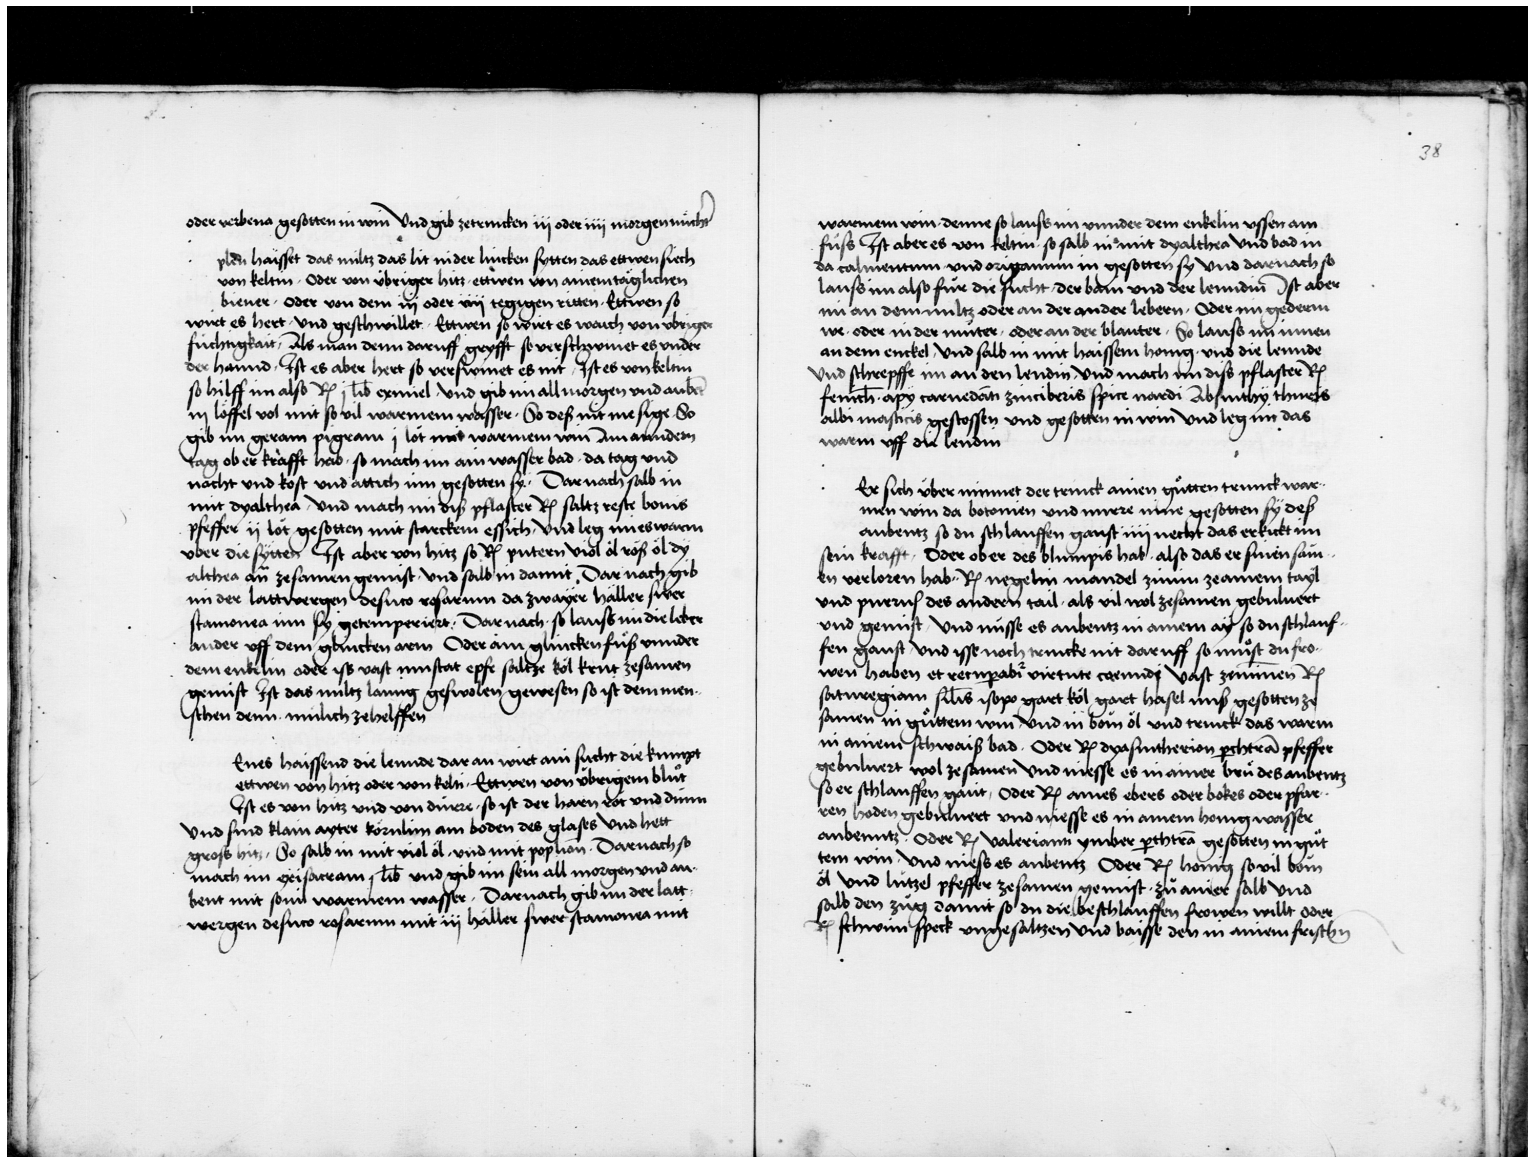 oder verbena gesotten in win Und gib zetrincken iij oder iiij morgen nůcht
plen haisset das miltz das lit in der lincken sytten das ettwen siech
von keltin · Oder von übriger hitz · ettwen von ainem täglichen
biener · oder von dem iij oder iiij tegigen ritten · Ettwen so
wirt es hert · und geschwillet · Ettwen so wirt es waich von übriger
füchtigkait · Als man denn daruff gryfft so verschwinet es under
der hannd · Ist es aber hert so verswinet es nit · Ist es von keltin
so hilff im also Rc j lib eximel · Und gib im all morgen und aubet
iij löffel vol mit so vil warmem wasser · So deß nit me sige · So
gib im geram pigram j lot mit warmem win Am anndern
tag ob er krafft hab · so mach im ain wasser bad · da tag und
nacht und kost und attich inn gesotten sy · Dar nach salb in
mit dyalthea · Und mach im diß pflaster Rc saltz reste bonis
pfeffer ij lot gesotten mit starckem essich · Und leg im es warm
über die sytten Ist aber von hitz so Rc putern viol öl roß öl dy
althea aū zesamen gemist · Und salb in damit · Dar nach gib
im der lattwergen desuco rosarum da zwayer haller swer
stamonea inn sy getemperiert · Dar nach · so lauß im die leber
ander uff dem glincken arm Oder am glincken fuß unnder
dem enkelin oder iss vast innstat epfe saltze köl krut zesamen
gemist Ist das miltz lanng geswolen gewesen so ist dem men-
schen denn · mülich ze helffen
Enes haissend die lennde dar an wirt ain sucht die kumpt
ettwen von hitz oder von kelti · Ettwen von übrigem blůt
Ist es von hitz und von dürre · so ist der harn rot und dünn
Und sind klain ayter körnlin am boden des glases Und hett
gross hitz · So salb in mit viol öl · und mit poplion · Darnach so
mach im oxisacram j lib und gib im sein all morgen und au-
bent mit souil warmem wasser · Darnach gib im der latt-
wergen desuco rosarum mit iij haller swer stamonea mit
38
warmem win · denne so lauss im unnder dem enkelin ussen am
fůss Ist aber es von keltin · so salb in mit dyalthea Und bad in
da calmentum · und origanum in gesotten sy Und darnach so
lauss im also für die sucht · der bain und der lenndin Ist aber
im an dem miltz oder an der ander lebern · Oder im gederm
we · oder in der můter · oder an der blauter · So lauss im innen
an dem enckel · Und salb in mit haissem honig · und die lennde
Und schrepffe im an den lendin · Und mach im diss pflaster Rc
fenich · apy carnedāti zinciberis spice nardi Absinthy thuris
albi masticis gestossen und gesotten in win Und leg im das
warm uff die lendin
Er sich über nimmet der trinck ainen gůtten trunck war-
men win da botonien und mirre inne gesotten sy deß
aubentz so du schlauffen gaust iiij necht das erkickt im
sein krafft · Oder ob er des blumpis hab · also das er sinen säm-
en verloren hab · Rc negelin mandel zimm ze ainem tayl
und puretz des andern tail · als vil wol zesamen gebulvert
und gemist · Und nüsse es aubentz in ainem ay so du schlauf-
fen gaust Und isse noch trincke nit daruff so můst du fro-
wen haben et recuperabit virtute coeundi Vast zeminnen Rc
satureygiam silis isopo gart köl gart hasel nuß gesotten ze
samen in gůttem win · Und in bom öl und trinck das warm
in ainem schwaiß bad · Oder Rc dyasintherion perchtrā pfeffer
gebulvert wol zesamen Und niesse es in ainer brů des aubentz
so er schlauffen gaut · Oder Rc aines ebers oder bokes oder pfar-
ren hoden gebulvert und niesse es in ainem honig wasser
aubenntz · Oder Rc Valeriann ymber perchtrā gesotten in gůt
tem win · Und niess es aubentz Oder Rc honig so vil bom
öl Und lützel pfeffer zesamen gemist · zů ainer salb Und
salb den züg damit so du die beschlauffen frowen willt oder
Rc schwinispeck ungesaltzen Und baisse den in ainem frischn